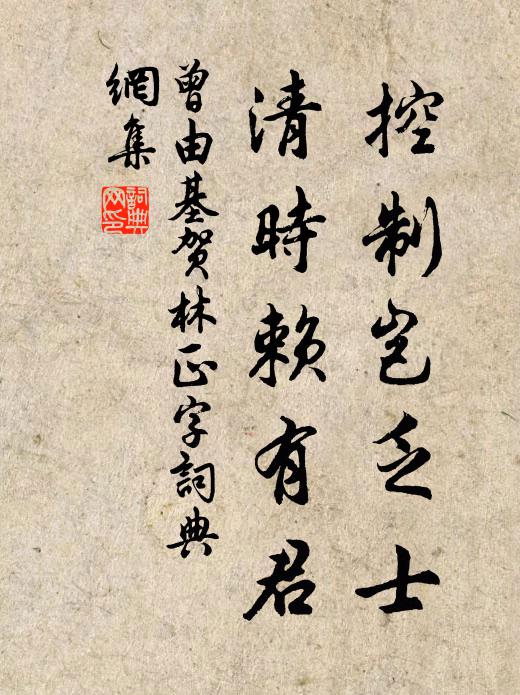 控制岂乏士
清時赖有君
曾由基贺林正字詞典
網集
詞典
网印